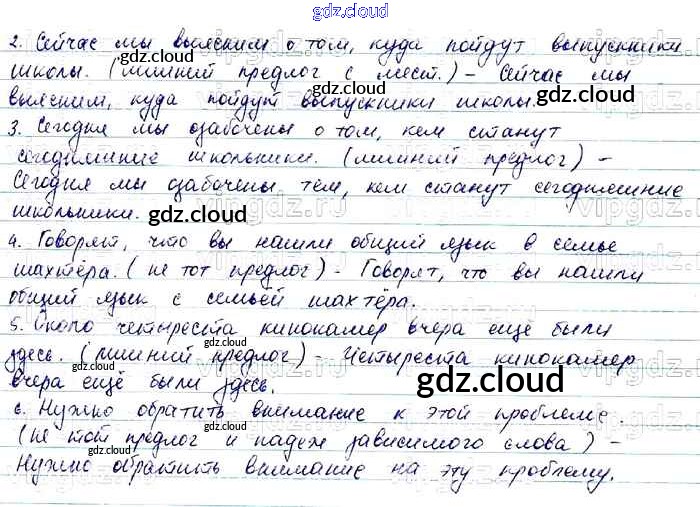 gdz.cloud
2. Сейчас мы выясним о том, куда пойдут выпускники
школы. (лишний предлог с мест.) – Сейчас мы
gdz.cloud
выясним, куда пойдут выпускники школы.
gdz.cloud
3. Сегодня мы озабочены о том, кем станут
сегодняшние школьники. (лишний предлог) –
Сегодня мы озабочены тем, кем станут сегодняшние
школьники.
gdz.cloud
gdz.cloud
4. Говорят, что вы нашли общий язык в семье
шахтёра. (не тот предлог) – Говорят, что вы нашли
общий язык с семьёй шахтёра.
5. Около четыреста кинокамер вчера ещё были
здесь. (лишний предлог) – Четыреста кинокамер
gdz.cloud
вчера ещё были здесь.
gdz.cloud
6. Нужно обратить внимание к этой проблеме.
gdz.cloud
(не тот предлог и падеж зависимого слова) –
gdz.cloud
Нужно обратить внимание на эту проблему.
gdz.cloud